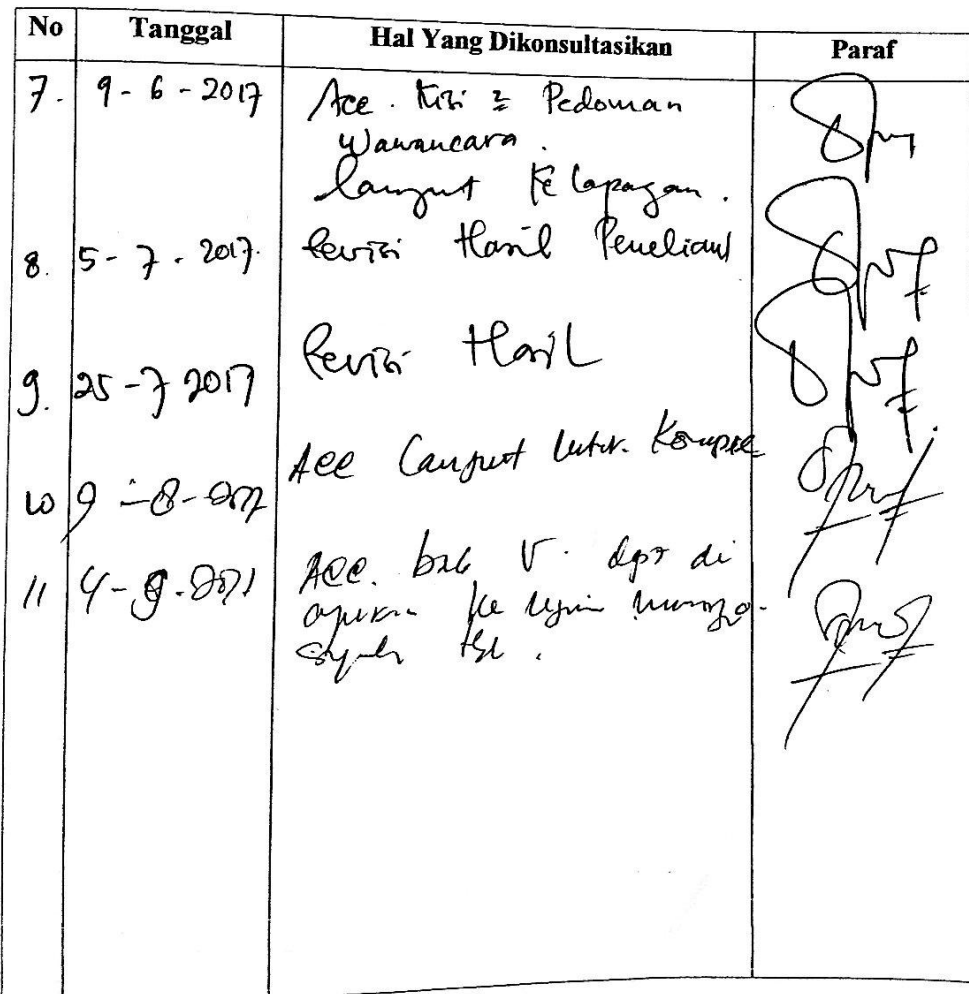 No Tanggal Hal Yang Dikonsultasikan Paraf
7. 9 - 6 - 2017 Acc. Kisi 2 Pedoman
Wawancara.
lanjut Ke lapagan.
8. 5 - 7 - 2017. Revisi Hasil Penelian
9. 25 - 7 2017 Revisi Hasil
10 9 - 8 - 2017 Acc Lanjut Kompre
11 4 - 9 - Acc. bab V. dpt di
ke